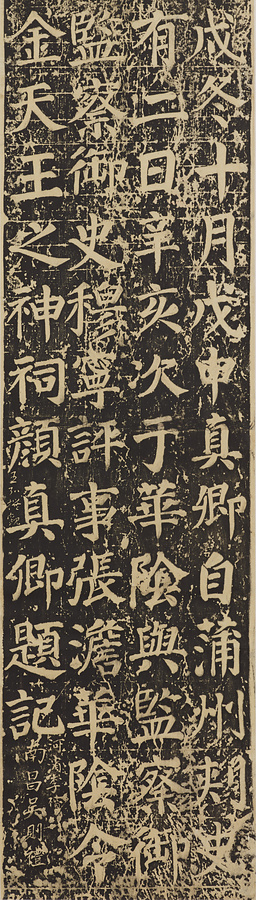 戌冬十月戊申真卿自蒲州刾史
有二日辛亥次于華陰與監察御
監察御史穆寧評事張澹華陰令
金天王之神祠顏真卿題記
南昌吳則禮